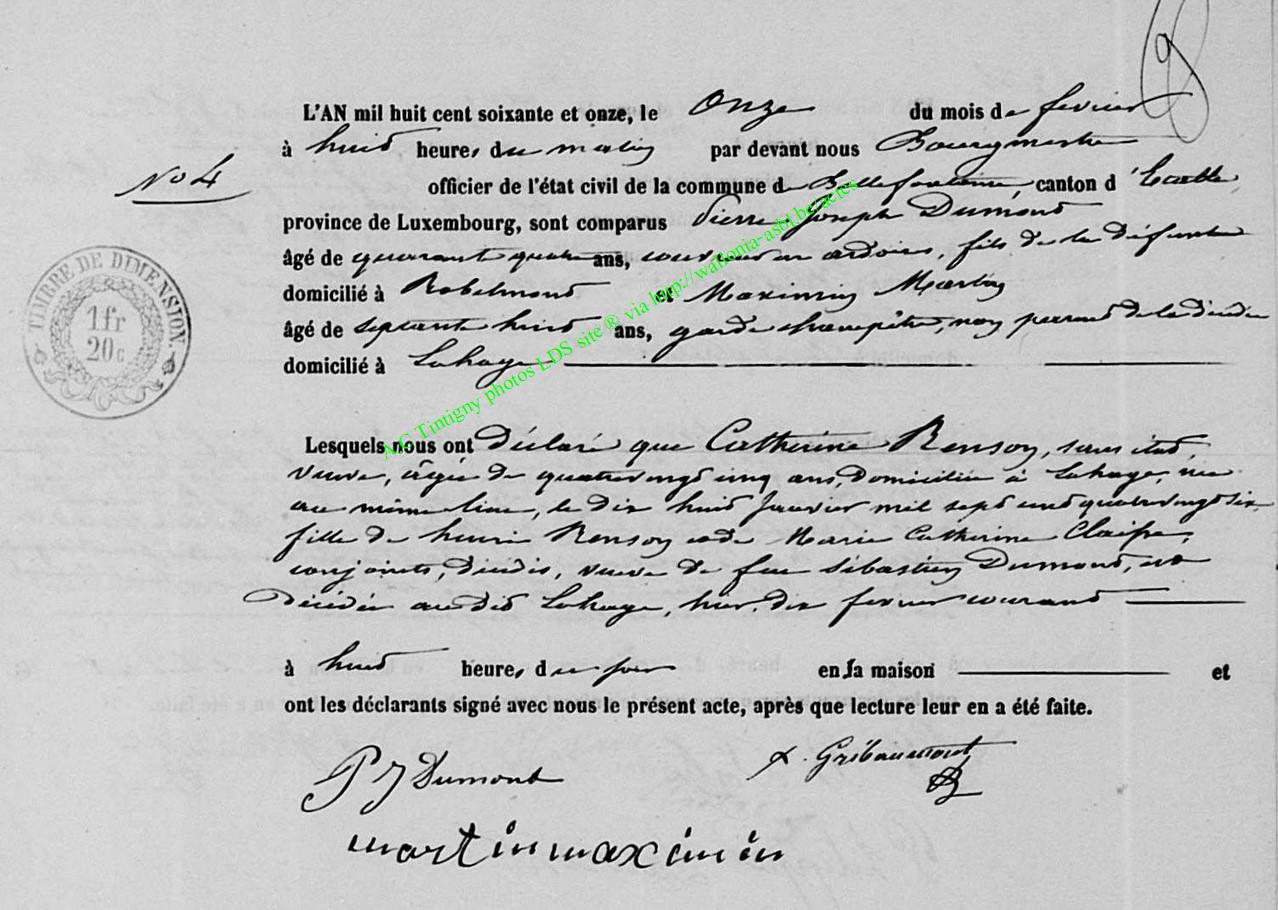 9
L'AN mil huit cent soixante et onze, le Onze du mois de fevrier
à huit heures du matin par devant nous Bourgmestre
No 4
officier de l'état civil de la commune de Bellefontaine, canton d'Etalle
province de Luxembourg, sont comparus Pierre Joseph Dumont
âgé de quarante quatre ans, couvreur en ardoises, fils de la défunte
domicilié à Robelmont et Maximin Martin
âgé de septante huit ans, garde champêtre, non parent de la dite
domicilié à Lahage
TIMBRE DE DIMENSION
1 fr
20 c
Lesquels nous ont déclaré que Catherine Renson, sans état,
veuve, âgée de quatrevingt cinq ans, domiciliée à Lahage, née
au même lieu, le dix huit Janvier mil sept cent quatrevingt six
fille de henri Renson et de Marie Catherine Claisse,
conjoints, décédés, veuve de feu Sébastien Dumont, est
décédée audit Lahage, hier, dix fevrier courant
à huit heures du soir en sa maison et
ont les déclarants signé avec nous le présent acte, après que lecture leur en a été faite.
P J Dumont
A. Gribaumont
martin maximin
A.C Tintigny photos LDS site ® via http://wallonia-asbl.be/actes